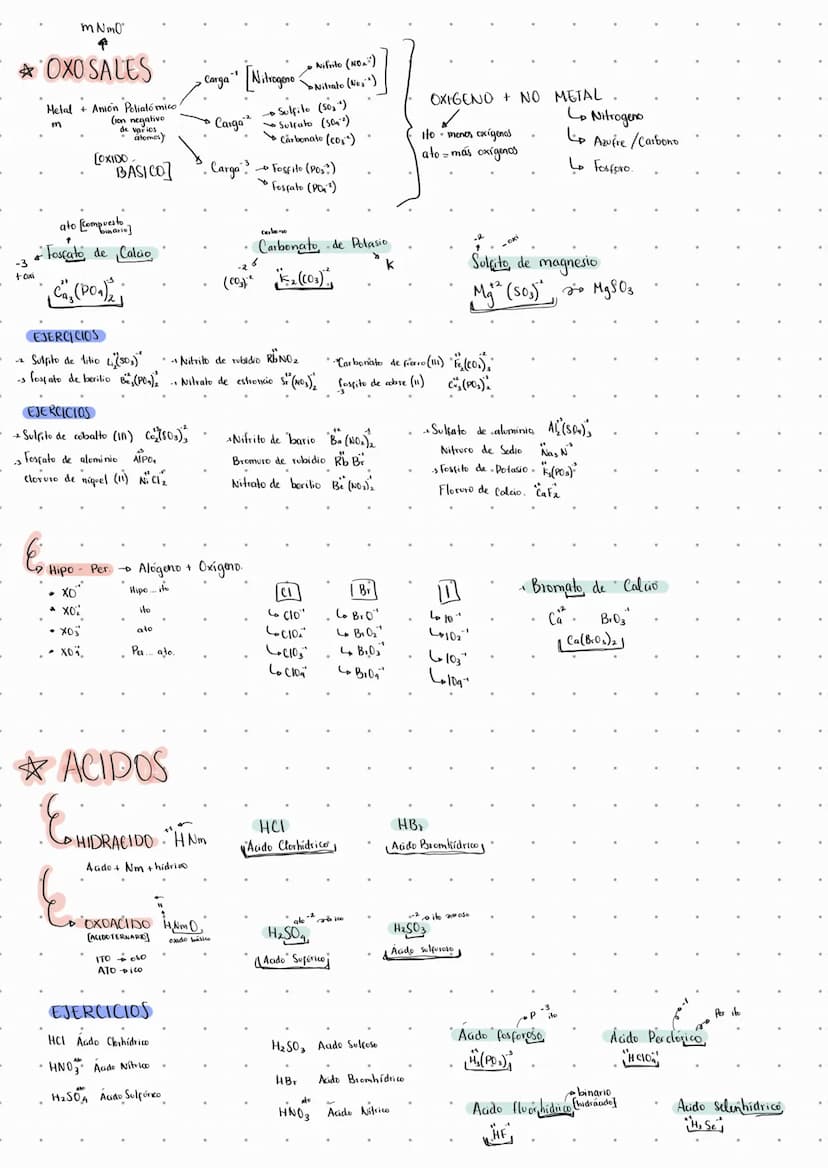 mNmO
☆ OXOSALES
Metal + Anión Poliatómico
m (ion negativo de varios atomos)
[OXIDO BASICO]
Carga⁻¹ [Nitrogeno → Nitrito (NO₂⁻¹)
→ Nitrato (NO₃⁻¹)]
Carga⁻² → Sulfito (SO₃⁻²)
→ Sulfato (SO₄⁻²)
→ Carbonato (CO₃⁻²)
Carga⁻³ → Fosfito (PO₃⁻³)
→ Fosfato (PO₄⁻³)
OXIGENO + NO METAL
Ito - menos oxígenos
ato = más oxígenos
↳ Nitrogeno
↳ Azufre / Carbono
↳ Fosforo.
ato [compuesto binario]
Fosfato de Calcio
-3
Ca₃(PO₄)₂
carbono
Carbonato de Potasio
-2 K
(CO₃)⁻² K₂(CO₃)⁻²
-2 -oxi
Sulfito de magnesio
Mg⁺²(SO₃)⁻² MgSO₃
EJERCICIOS
-2 Sulfito de litio Li₂(SO₃)⁻²
-3 fosfato de berilio Be₃(PO₄)₂
-1 Nitrito de rubidio RbNO₂
-1 Nitrato de estroncio Sr(NO₃)₂
Carbonato de fierro (III) Fe₂(CO₃)₃
fosfito de cobre (II) Cu₃(PO₃)₂
-3
EJERCICIOS
Sulfito de cobalto (III) Co₂(SO₃)₃
Fosfato de aluminio AlPO₄
cloruro de níquel (II) NiCl₂
Nitrito de bario Ba(NO₂)₂
Bromuro de rubidio RbBr
Nitrato de berilio Be(NO₃)₂
Sulfato de aluminio Al₂(SO₄)₃
Nitruro de Sodio Na₃N
Fosfito de Potasio K₃(PO₃)
Floruro de Calcio. CaF₂
Hipo - Per → Alógeno + Oxígeno.
• XO⁻¹ Hipo...ito
• XO₂⁻¹ ito
• XO₃⁻¹ ato
• XO₄⁻¹ Per... ato.
Cl
↳ ClO⁻¹
↳ ClO₂⁻¹
↳ ClO₃⁻¹
↳ ClO₄⁻¹
Br
↳ BrO⁻¹
↳ BrO₂⁻¹
↳ BrO₃⁻¹
↳ BrO₄⁻¹
I
↳ IO⁻¹
↳ IO₂⁻¹
↳ IO₃⁻¹
↳ IO₄⁻¹
Bromato de Calcio
Ca⁺² BrO₃⁻¹
Ca(BrO₃)₂
☆ ACIDOS
HIDRACIDO HNm
Acido + Nm + hídrico
HCl
Acido Clorhídrico
HBr
Acido Bromhídrico
OXOACIDO HNmO
[ACIDO TERNARIO] oxido básico
ITO → oso
ATO → ico
ato⁻² → ico
H₂SO₄
Acido Sufúrico
⁻² → ito → oso
H₂SO₃
Acido sulfuroso
EJERCICIOS
HCl Ácido Clorhídrico
HNO₃ Ácido Nítrico
H₂SO₄ Ácido Sulfúrico
H₂SO₃ Acido Sulfoso
HBr Acido Bromhídrico
HNO₃ Acido Nítrico
P⁻³ ito
Acido fosforoso
H₃(PO₃)⁻³
-1 Per ito
Ácido Perclórico
HClO₄
binario
Acido fluorhídrico [hidrácido]
HF
Acido Selenhídrico
H₂Se